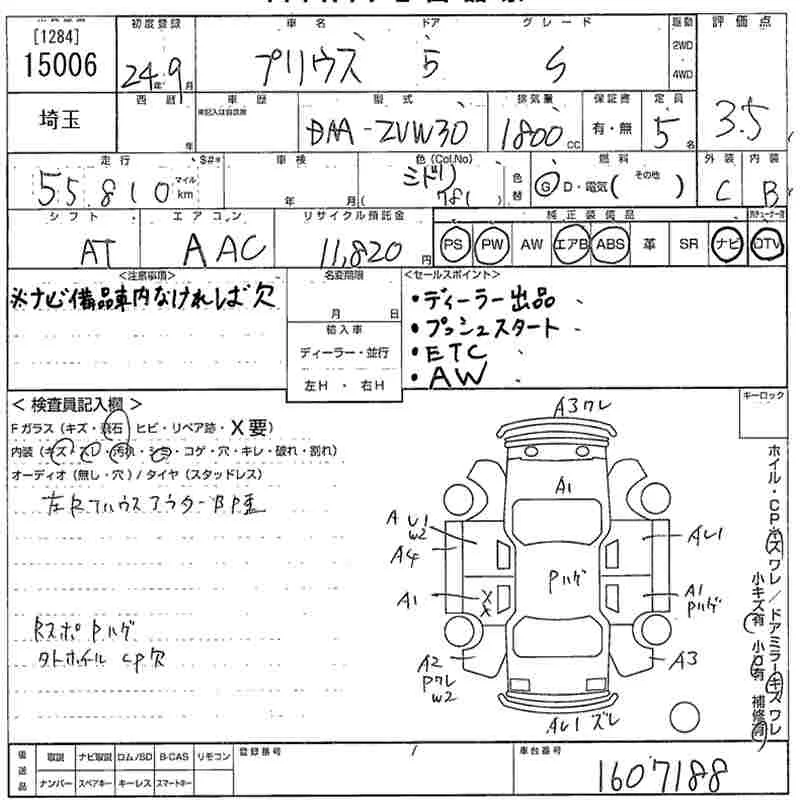 [1284]
15006
初度登録
24年9月
車名 ドア グレード
プリウス 5 S
駆動
2WD
4WD
評価点
3.5
埼玉
西暦
年
車歴
型式
DAA-ZVW30
排気量
1800cc
保証書
有・無
定員
5名
走行
55810
マイル
km
$#*
車検
年 月
色(Col.No)
ミドリ
781
色替
燃料
G D・電気( その他 )
外装
C
内装
B
シフト
AT
エアコン
AAC
リサイクル預託金
11,820円
純正装備品
PS PW AW エアB ABS 革 SR ナビ DTV
<注意事項>
※ナビ備品車内なければ欠
名変期限
月 日
輸入車
ディーラー・並行
左H・右H
<セールスポイント>
・ディーラー出品、
・プッシュスタート、
・ETC、
・AW、
<検査員記入欄>
Fガラス(キズ・飛石 ヒビ・リペア跡・X要)
内装(キズ・スレ・汚れ・シミ・コゲ・穴・キレ・破れ・割れ)
オーディオ(無し・穴)/タイヤ(スタッドレス)
RスポPハゲ
タトホイル CP欠
キーロック
A3ワレ
A1
AU1
W2
A4
A1
XX
A2
Pワレ
W2
Pハゲ
AU1
A1
Pハゲ
A3
AU1ズレ
ホイル・CPキズワレ/ドアミラーキズワレ
小キズ有 小凹有 補修有
後送品
取説 ナビ取説 ロム/SD B-CAS リモコン
ナンバー スペアキー キーレス スマートキー
登録番号
車台番号
1607188